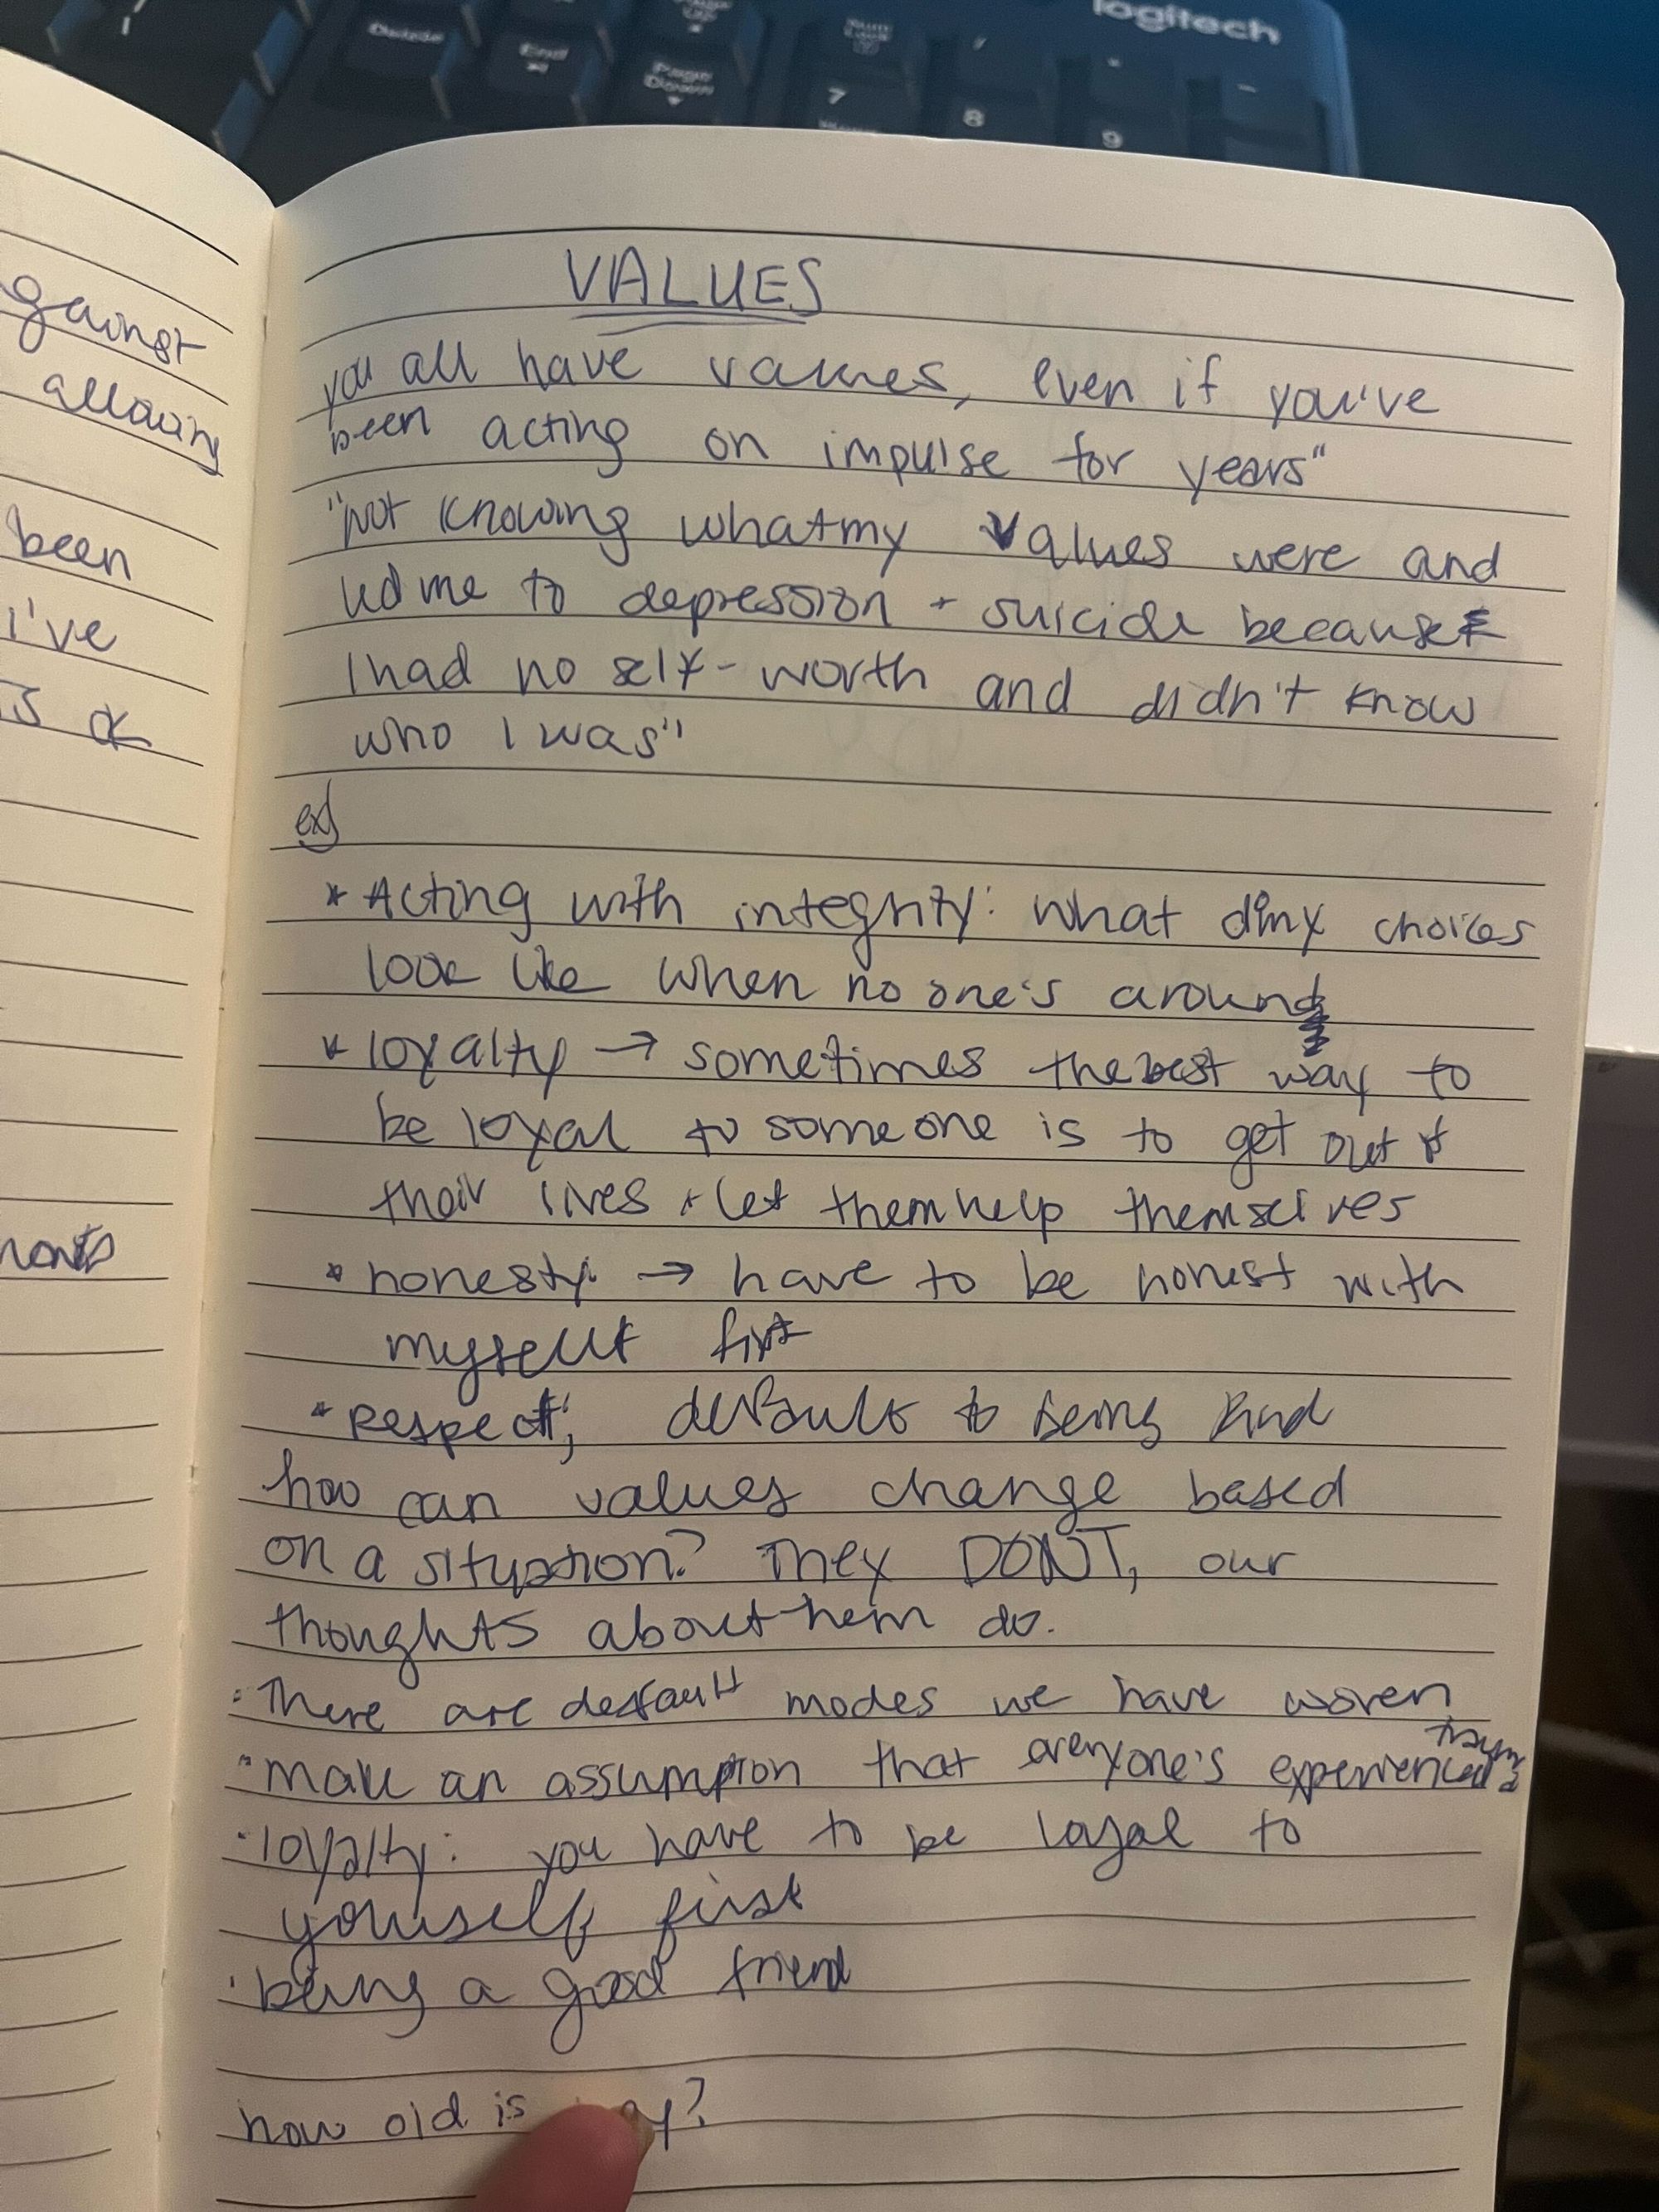 logitech
Delete
End
Page
Down
Num
Lock
7
8
9
/
*
-
gainst
allowing
been
i've
VALUES
you all have values, even if you've
been acting on impulse for years"
"not knowing what my values were and
led me to depression + suicide because
I had no self-worth and didn't know
who I was"
ex)
* Acting with integrity: what do my choices
look like when no one's around
* loyalty → sometimes the best way to
be loyal to someone is to get out of
their lives + let them help themselves
* honesty → have to be honest with
myself first
* respect; default to being kind
how can values change based
on a situation? They DONT, our
thoughts about them do.
· There are default modes we have woven
· make an assumption that everyone's experienced trauma
· loyalty: you have to be loyal to
yourself first
· being a good friend
how old is